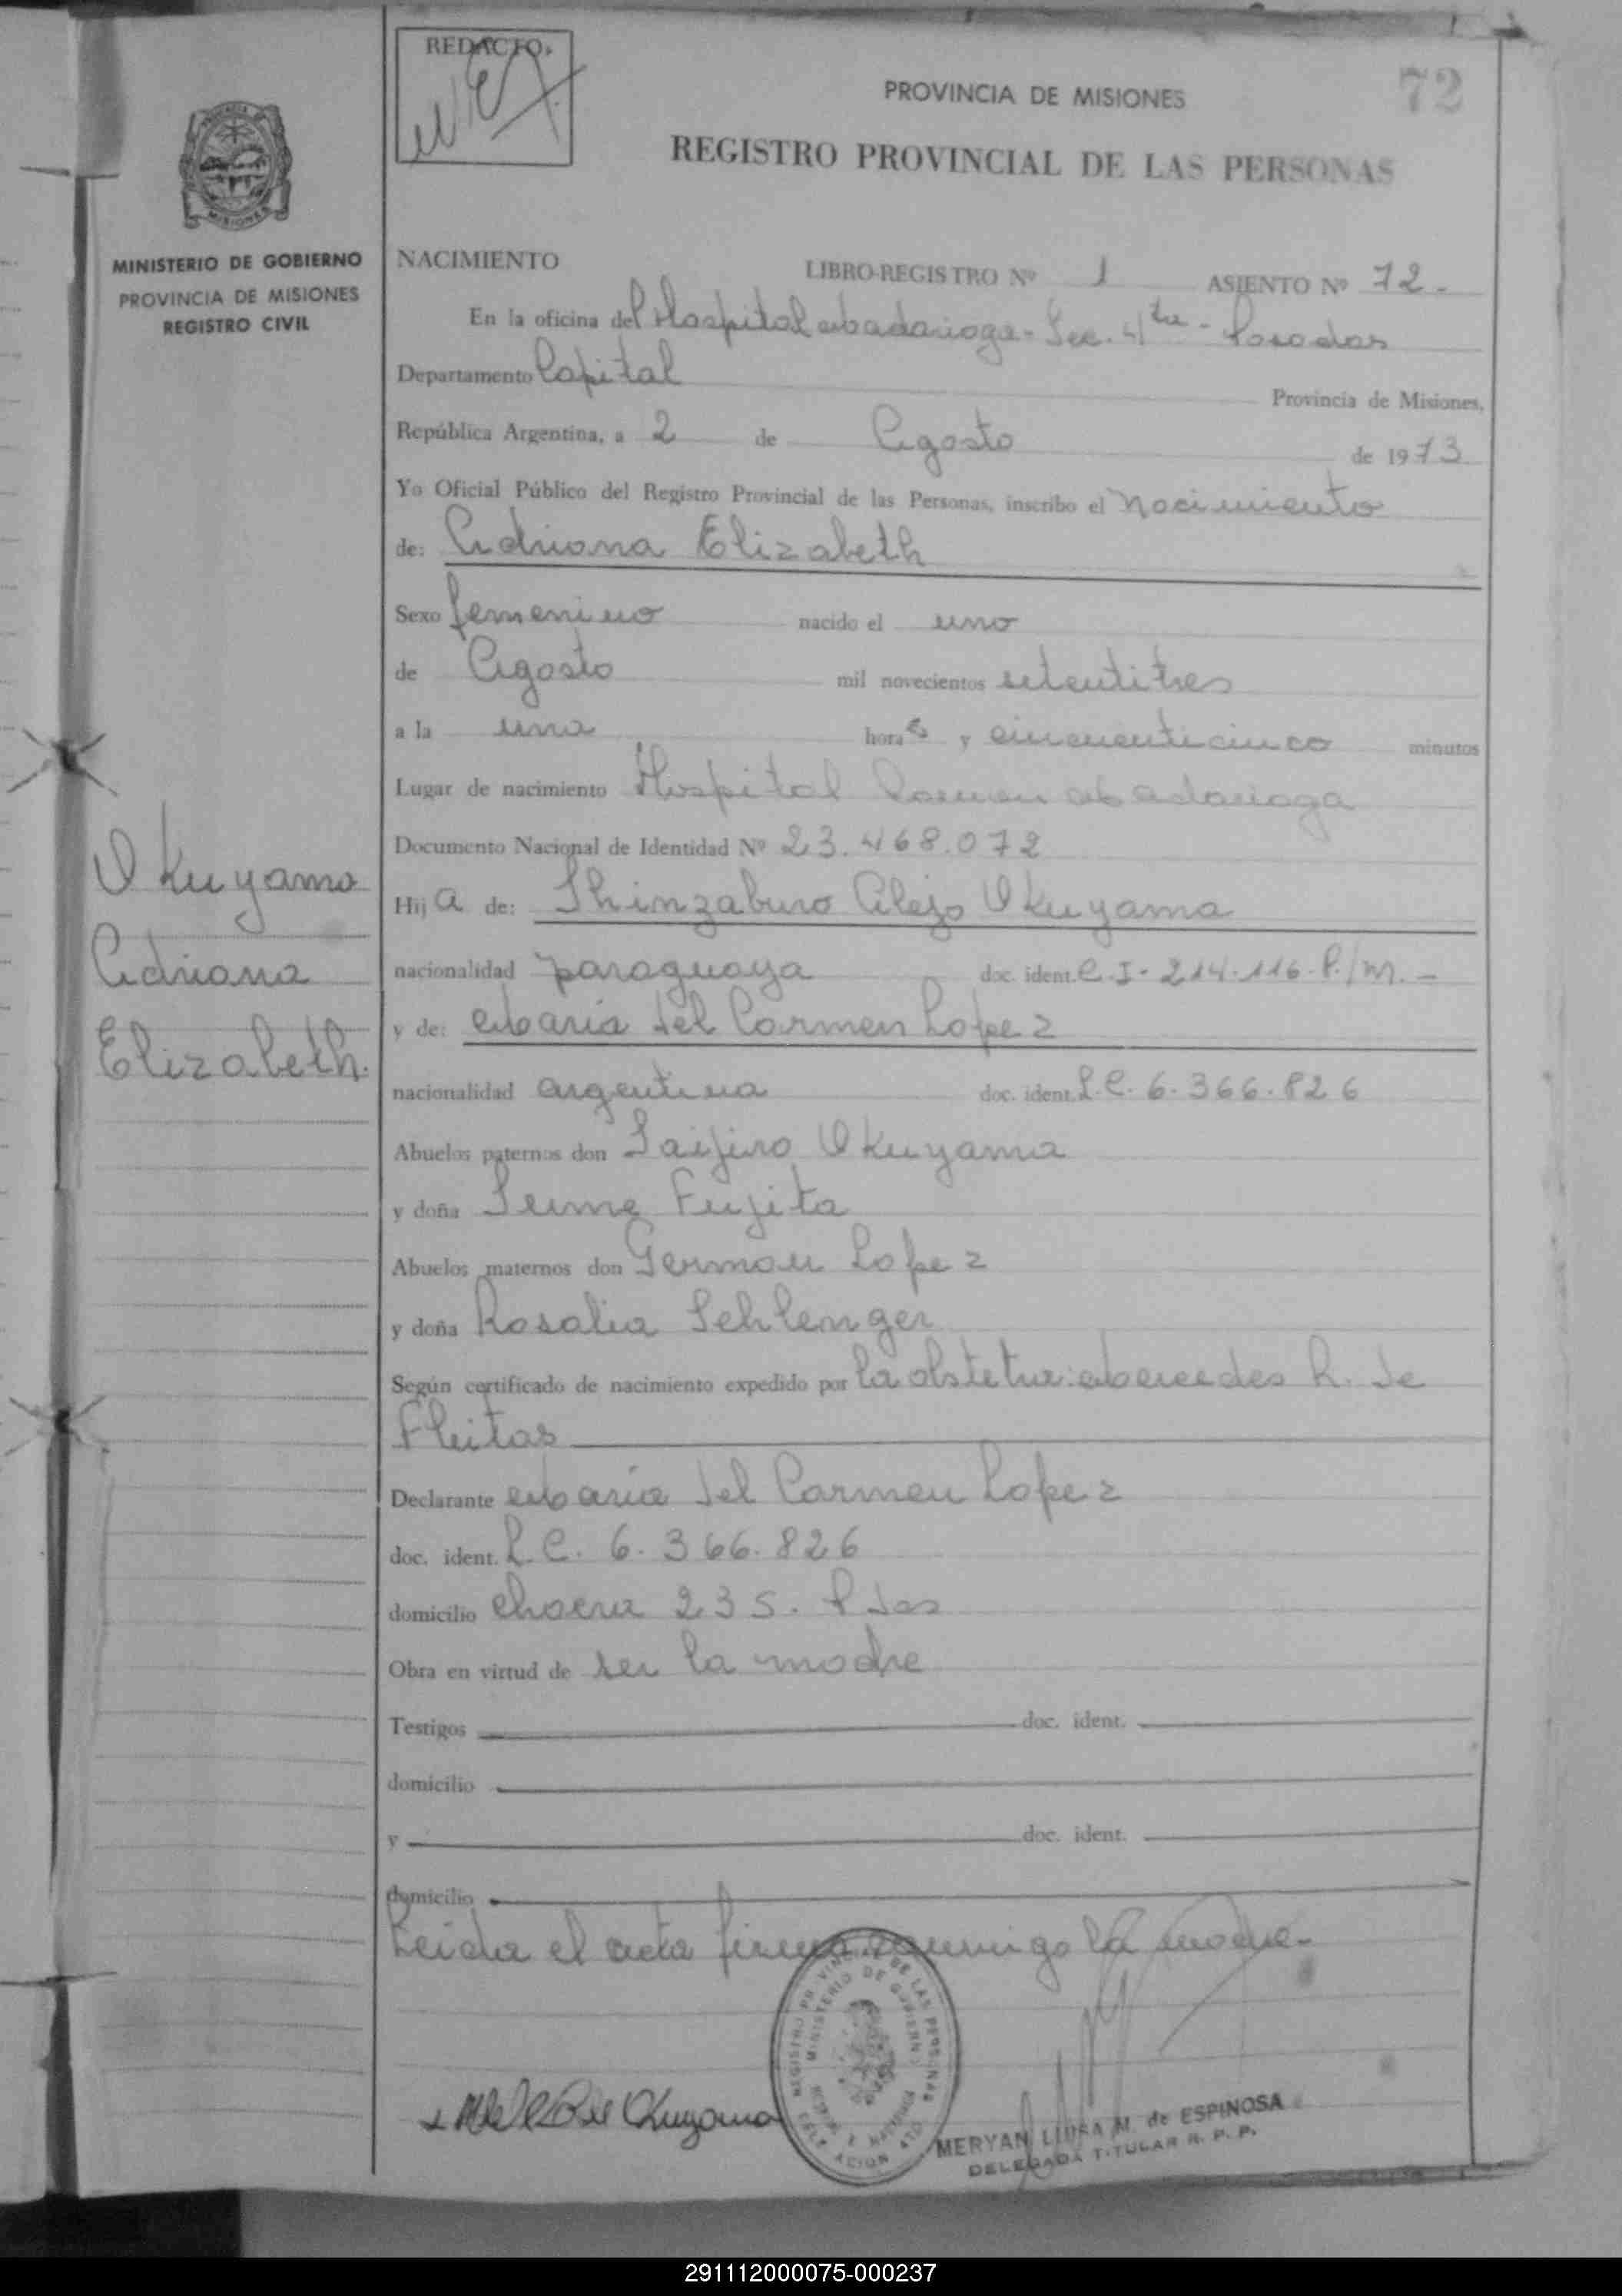 REDACTO.
72
PROVINCIA DE MISIONES
REGISTRO PROVINCIAL DE LAS PERSONAS
MISIONES
MINISTERIO DE GOBIERNO
PROVINCIA DE MISIONES
REGISTRO CIVIL
NACIMIENTO LIBRO-REGISTRO Nº 1 ASIENTO Nº 72.-
En la oficina del Hospital Madariaga - Sec. 4ta - Posadas
Departamento Capital Provincia de Misiones,
República Argentina, a 2 de Agosto de 1973
Yo Oficial Público del Registro Provincial de las Personas, inscribo el Nacimiento
de: Adriana Elizabeth
Sexo femenino nacido el uno
de Agosto mil novecientos setentitres
a la una horas y cincuenticinco minutos
Lugar de nacimiento Hospital Ramon Madariaga
Documento Nacional de Identidad Nº 23.468.072
Okuyama
Adriana
Elizabeth.
Hija de: Shinzaburo Alejo Okuyama
nacionalidad paraguaya doc. ident. C.I. 214.116.P./M.-
y de: Maria del Carmen Lopez
nacionalidad argentina doc. ident. L.C. 6.366.826
Abuelos paternos don Saijiro Okuyama
y doña Sume Fujita
Abuelos maternos don German Lopez
y doña Rosalia Schlenger
Según certificado de nacimiento expedido por la obstetra: Mercedes R. de
Fleitas
Declarante Maria del Carmen Lopez
doc. ident. L.C. 6.366.826
domicilio 235. Pdas
Obra en virtud de ser la madre
Testigos doc. ident.
domicilio
y doc. ident.
domicilio
Leida el acta firma conmigo la madre.-
REGISTRO PROVINCIAL DE LAS PERSONAS
MINISTERIO DE GOBIERNO
Okuyama
MERYAN LUISA M. de ESPINOSA
DELEGADA TITULAR R. P. P.
291112000075-000237